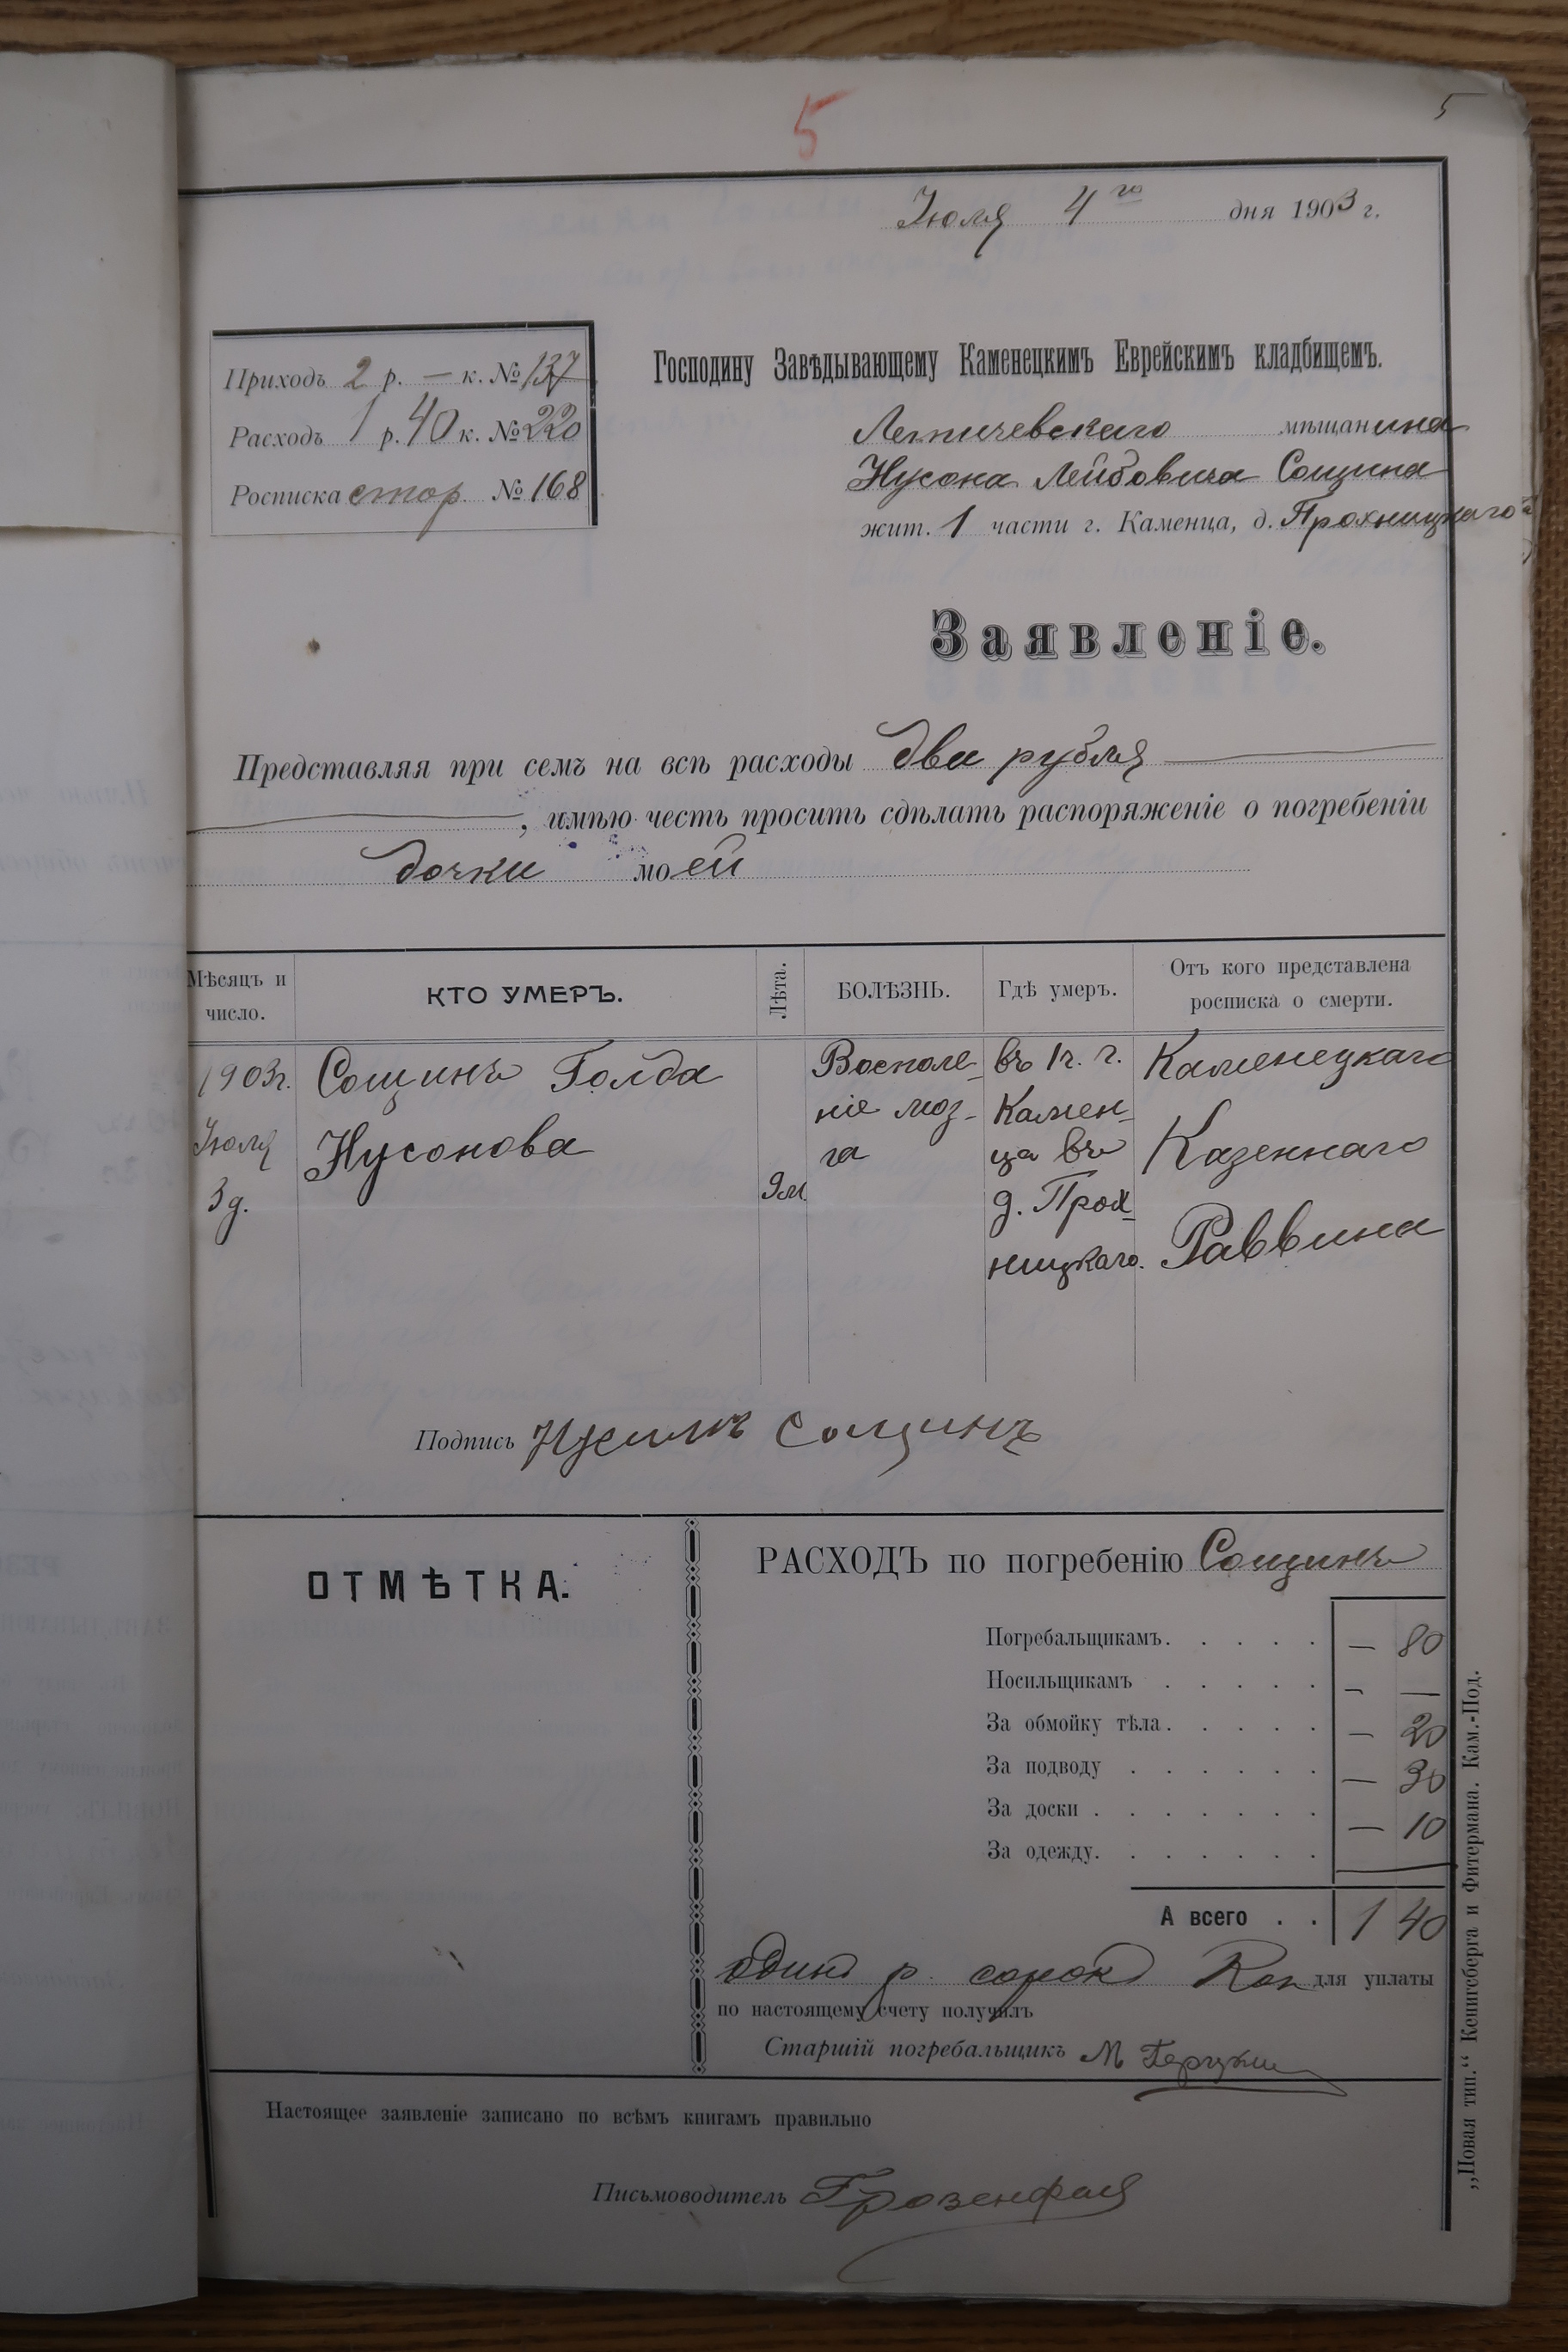 5
5
Июля 4го дня 1903 г.
Приходъ 2 р. — к. № 137
Расходъ 1 р. 40 к. № 220
Росписка стор. № 168
Господину Завѣдывающему Каменецкимъ Еврейскимъ кладбищемъ.
Летичевскаго мѣщанина
Нусона Лейбовича Сощина
жит. 1 части г. Каменца, д. Прохницкаго
Заявленіе.
Представляя при семъ на всѣ расходы два рубля —
—, имѣю честь просить сдѣлать распоряженіе о погребеніи
дочки моей
Мѣсяцъ и число. КТО УМЕРЪ. Лѣта. БОЛѢЗНЬ. Гдѣ умеръ. Отъ кого представлена росписка о смерти.
1903г. Сощинъ Голда Восполе- въ 1 ч. г. Каменецкаго
Июля Нусонова ніе моз- Камен- Казеннаго
3 д. 9 м га ца въ Раввина
д. Прох-
ницкаго.
Подпись Сощинъ
ОТМѢТКА.
РАСХОДЪ по погребенію Сощинъ
Погребальщикамъ. . . . . — 80
Носильщикамъ . . . . . – —
За обмойку тѣла. . . . . — 20
За подводу . . . . . . — 30
За доски . . . . . . . — 10
За одежду. . . . . . .
А всего . . 1 40
один р. сорок Коп для уплаты
по настоящему счету получилъ
Старшій погребальщикъ М
Настоящее заявленіе записано по всѣмъ книгамъ правильно
Письмоводитель
„Новая тип.“ Кенигсберга и Фитермана. Кам.-Под.